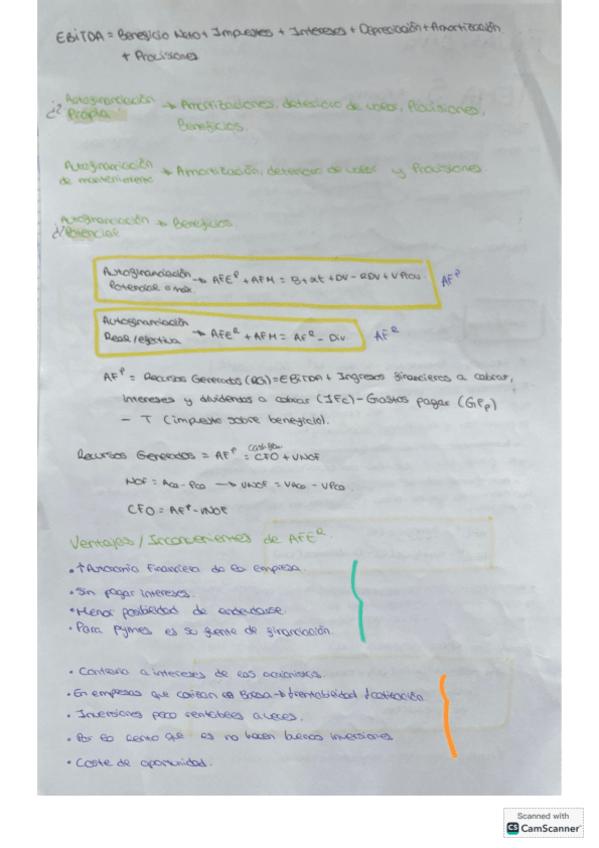 EBITDA = Beneficio Neto + Impuestos + Intereses + Depreciación + Amortización
+ Provisiones
¿? Autofinanciación → Amortizaciones, deterioro de valor, Provisiones,
Propia Beneficios.
Autofinanciación → Amortización, deterioro de valor y Provisiones.
de mantenimiento
Autofinanciación → Beneficios
Potencial
Autofinanciación → AFE^P + AFM = B + at + DV - RDV + VProv.
Potencial o máx. AF^P
Autofinanciación → AFE^R + AFM = AF^R - Div.
Real/efectiva AF^R
AF^P = Recursos Generados (RG) = EBITDA + Ingresos financieros a cobrar,
intereses y dividendos a cobrar (IFc) - Gastos pagar (GFp)
- T (impuesto sobre beneficio).
Cash flow
Recursos Generados = AF^P = CFO + VNOF
NOF = Aco - Pco → VNOF = VAco - VPco
CFO = AF^P - VNOF
Ventajas / Inconvenientes de AFE^R
• ↑ Autonomía Financiera de la empresa.
• Sin pagar intereses.
• Menor posibilidad de endeudarse.
• Para pymes es su fuente de financiación.
• Contraria a intereses de los accionistas.
• En empresas que cotizan en Bolsa → ↓ rentabilidad ↓ cotización
• Inversiones poco rentables a veces.
• Por lo cierto que es no hacen buenas inversiones
• Coste de oportunidad.
Scanned with
CS CamScanner